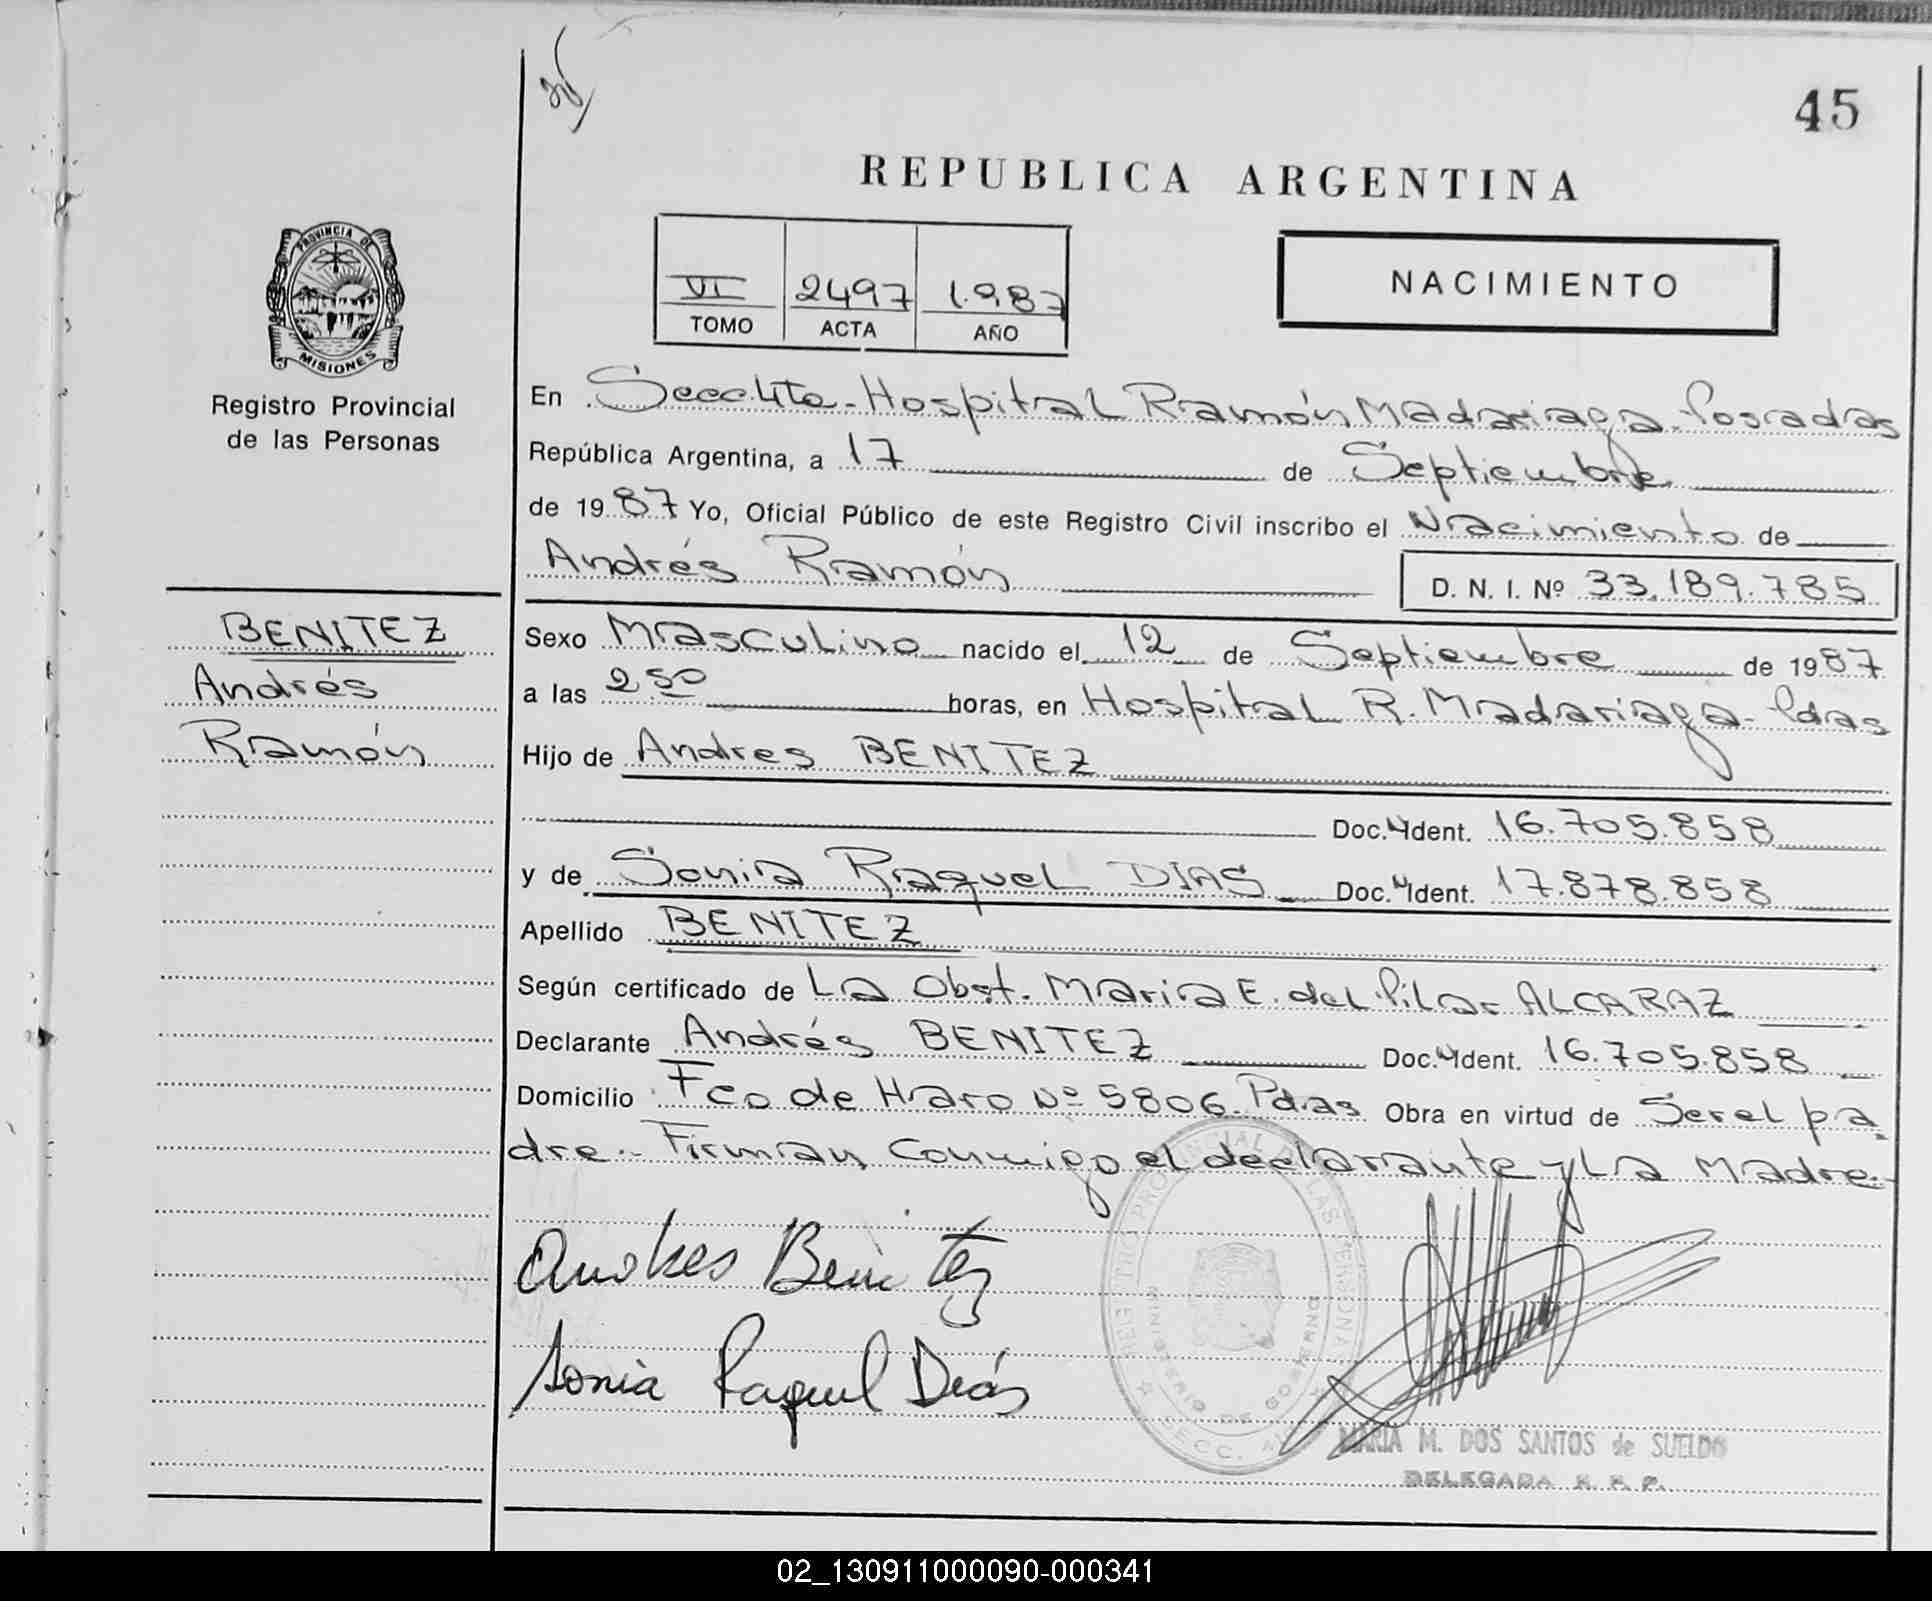 45
REPUBLICA ARGENTINA
PROVINCIA DE
MISIONES
Registro Provincial
de las Personas
VI 2497 1.987
TOMO ACTA AÑO
NACIMIENTO
En Hospital Ramón Madariaga. Posadas
República Argentina, a 17 de Septiembre
de 1987 Yo, Oficial Público de este Registro Civil inscribo el Nacimiento de
Andrés Ramón D. N. I. Nº 33.189.785
BENITEZ
Andrés
Ramón
Sexo Masculino nacido el 12 de Septiembre de 1987
a las 2.50 horas, en Hospital R. Madariaga- Pdas
Hijo de Andres BENITEZ
Doc. Ident. 16.705.858
y de Sonia Raquel DIAS Doc. Ident. 17.878.858
Apellido BENITEZ
Según certificado de La Obst. Maria E. del Pilar ALCARAZ
Declarante Andrés BENITEZ Doc. Ident. 16.705.858
Domicilio Fco de Haro Nº 5806. Pdas Obra en virtud de Ser el pa
dre.- Firman conmigo el declarante y La Madre.-
Andres Benitez
Sonia Raquel Diás
REGISTRO PROVINCIAL DE LAS PERSONAS
MINISTERIO DE GOBIERNO
SECC.
MARIA M. DOS SANTOS de SUELDO
DELEGADA R. P. P.
02_130911000090-000341